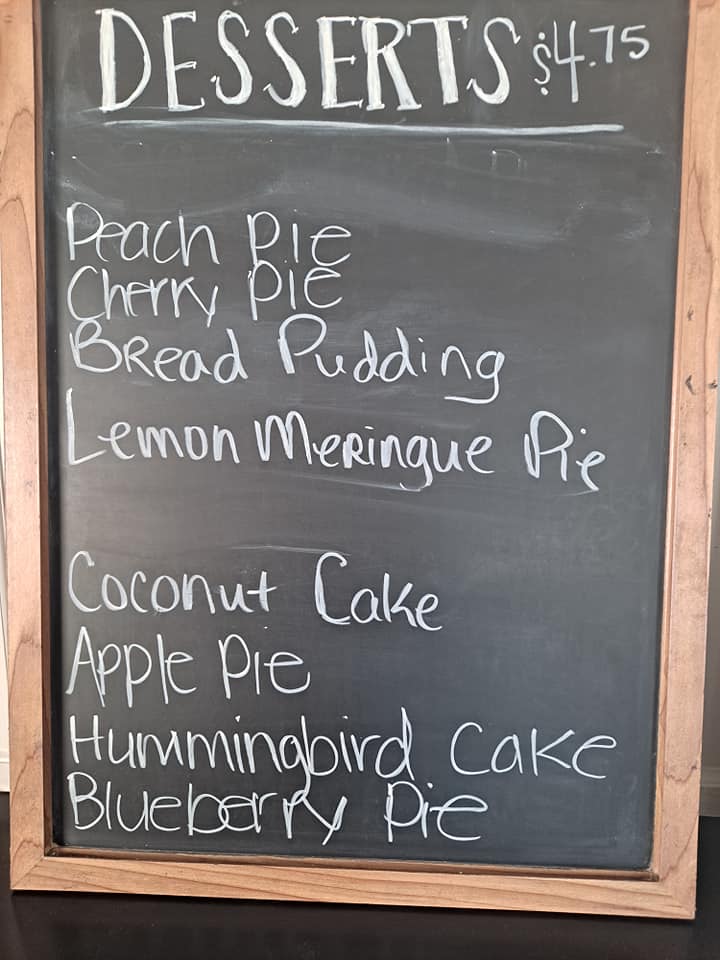 DESSERTS $4.75
Peach Pie
Cherry Pie
Bread Pudding
Lemon Meringue Pie
Coconut Cake
Apple Pie
Hummingbird Cake
Blueberry Pie